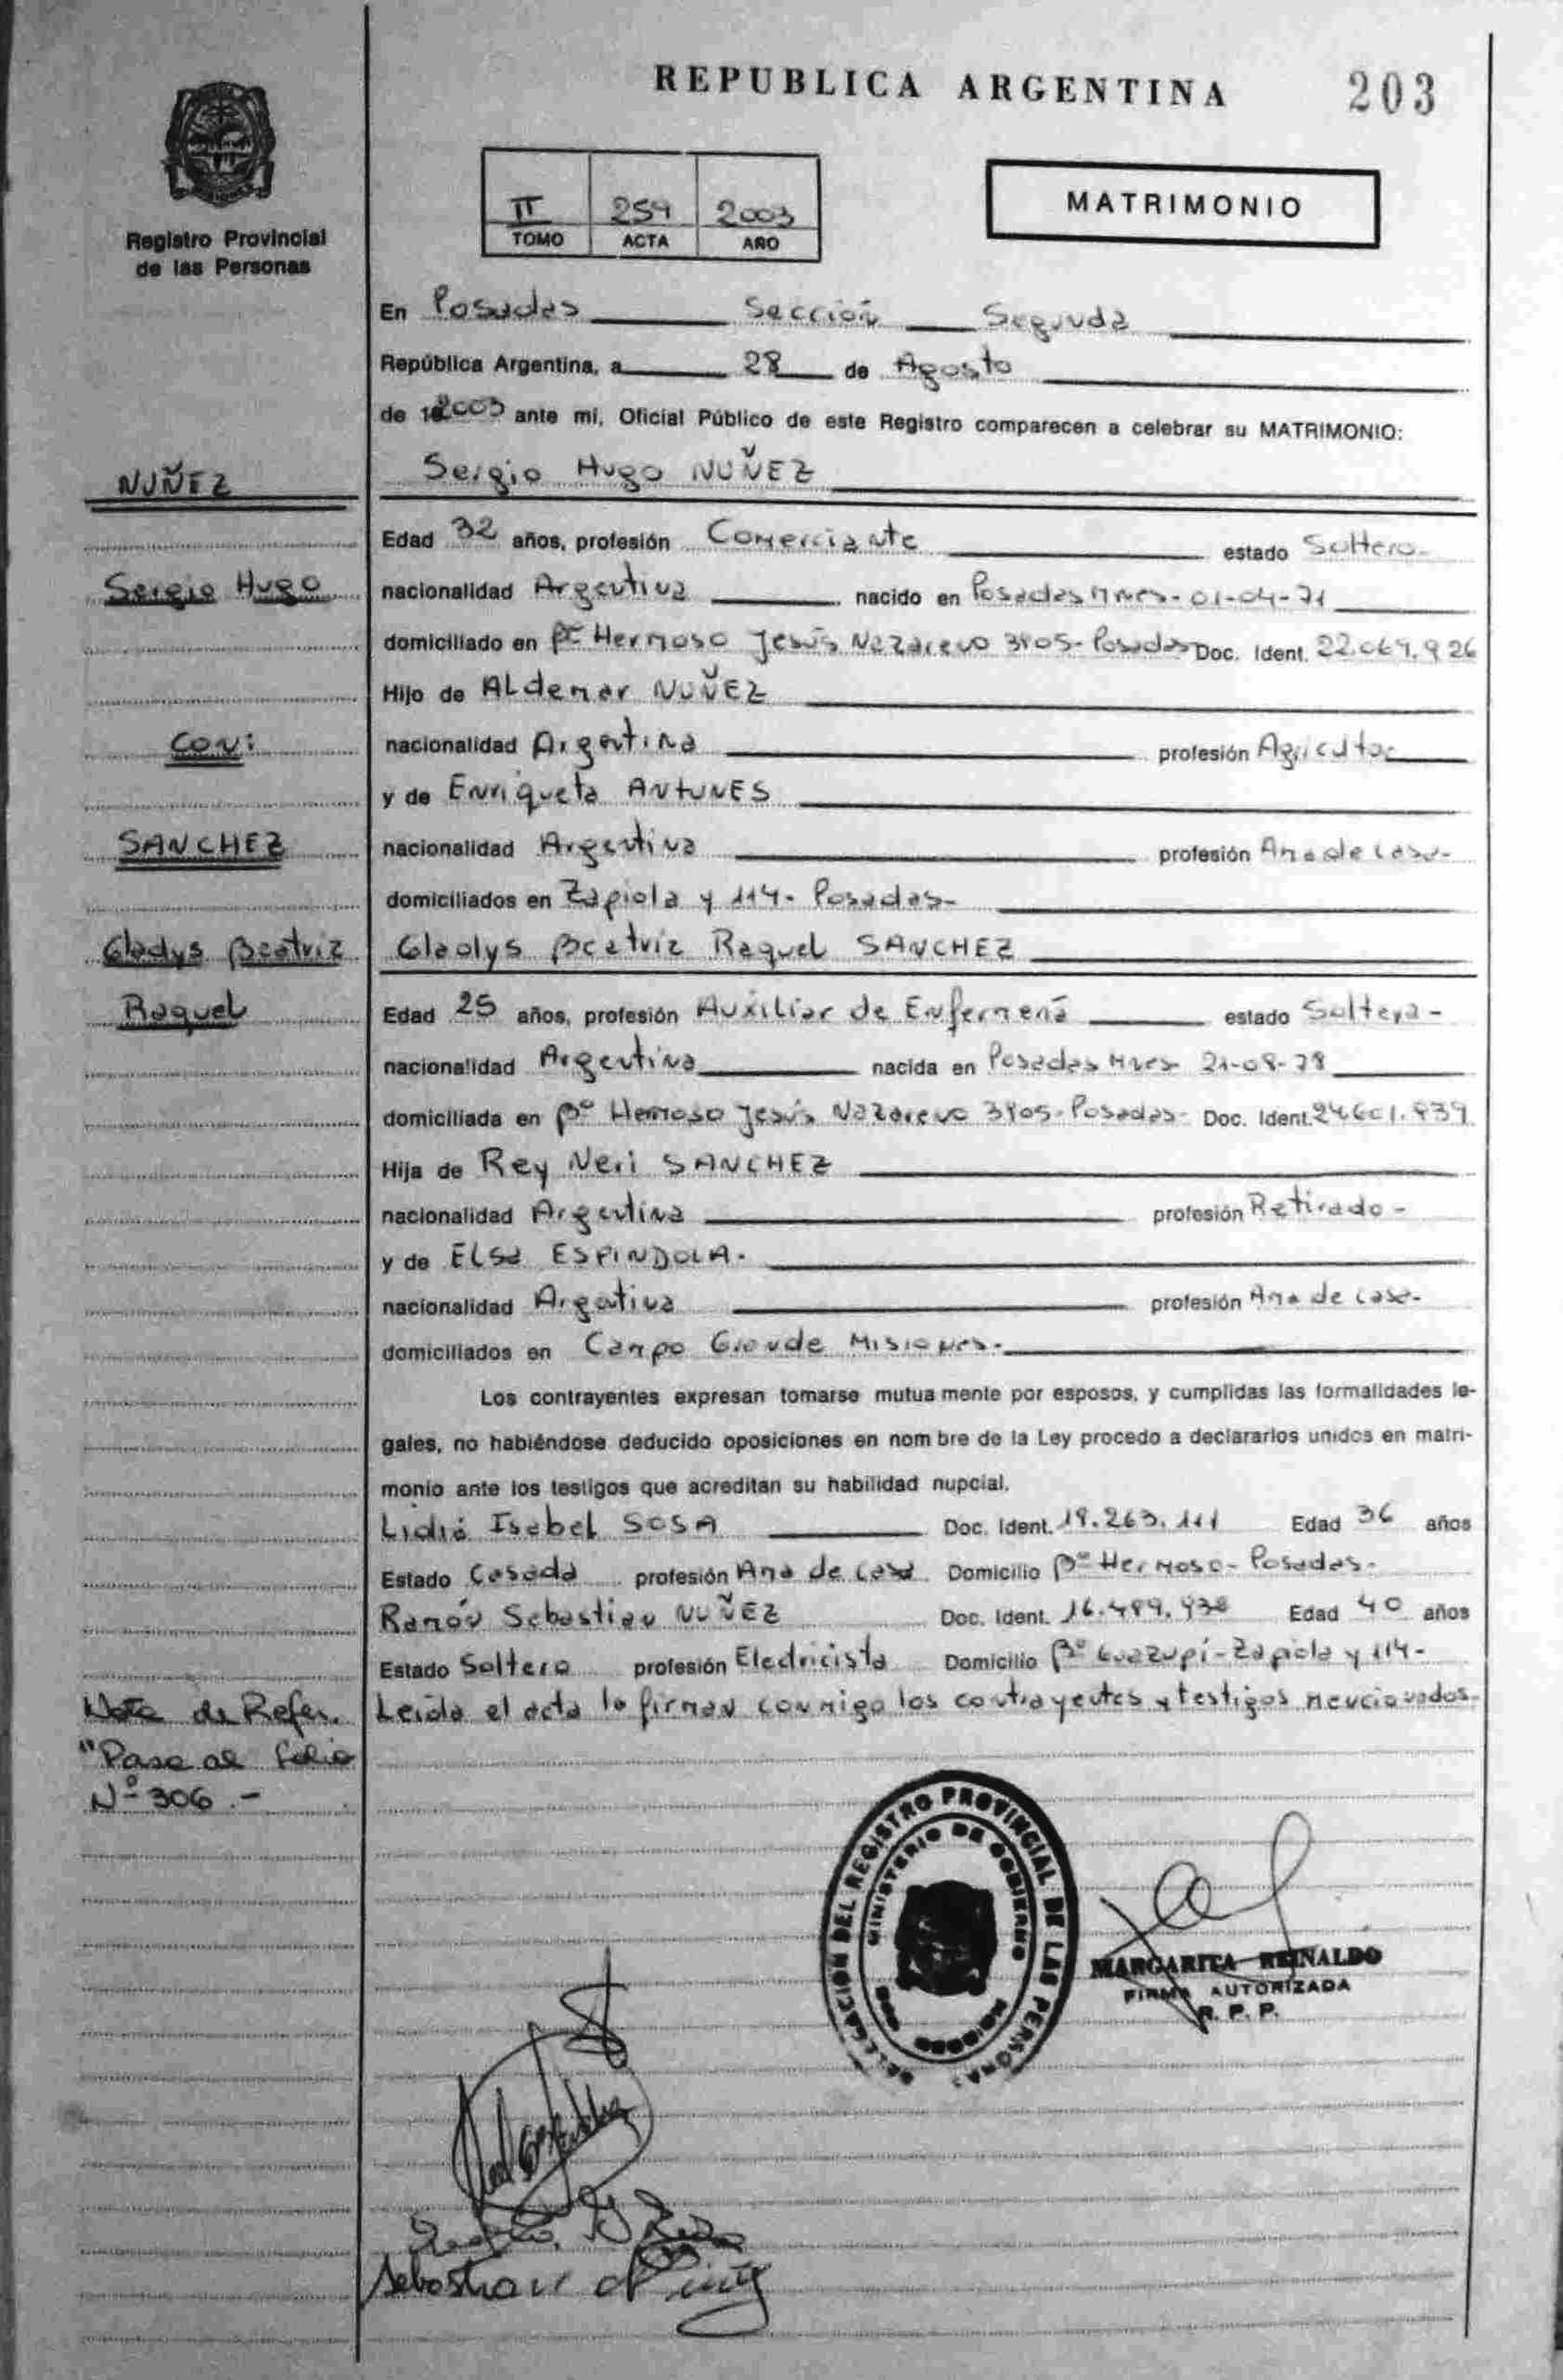 REPUBLICA ARGENTINA 203
Registro Provincial
de las Personas
II 259 2003
TOMO ACTA AÑO
MATRIMONIO
En Posadas Sección Segunda
República Argentina, a 28 de Agosto
de 2003 ante mi, Oficial Público de este Registro comparecen a celebrar su MATRIMONIO:
NUÑEZ
Sergio Hugo NUÑEZ
Edad 32 años, profesión Comerciante estado Soltero-
Sergio Hugo
nacionalidad Argentina nacido en Posadas Mnes- 01-04-71
domiciliado en Bº Hermoso Jesús Nazareno 3805- Posadas Doc. Ident. 22.069.926
Hijo de Aldemar NUÑEZ
CON:
nacionalidad Argentina profesión Agricultor
y de Enriqueta ANTUNES
SANCHEZ
nacionalidad Argentina profesión Ama de casa-
domiciliados en Zapiola y 114- Posadas-
Gladys Beatriz
Gladys Beatriz Raquel SANCHEZ
Raquel
Edad 25 años, profesión Auxiliar de Enfermería estado Soltera-
nacionalidad Argentina nacida en Posadas Mnes- 21-08-78
domiciliada en Bº Hermoso Jesús Nazareno 3805- Posadas- Doc. Ident.
Hija de Rey Neri SANCHEZ
nacionalidad Argentina profesión Retirado-
y de Elsa ESPINDOLA-
nacionalidad Argentina profesión Ama de casa-
domiciliados en Campo Grande Misiones-
Los contrayentes expresan tomarse mutua mente por esposos, y cumplidas las formalidades le-
gales, no habiéndose deducido oposiciones en nom bre de la Ley procedo a declararlos unidos en matri-
monio ante los testigos que acreditan su habilidad nupcial.
Lidia Isabel SOSA Doc. Ident. 18.263.111 Edad 36 años
Estado Casada profesión Ama de casa Domicilio Bº Hermoso- Posadas-
Ramón Sebastian NUÑEZ Doc. Ident. 16.489.938 Edad 40 años
Estado Soltero profesión Electricista Domicilio Bº Guazupi- Zapiola y 114-
Leida el acta la firman conmigo los contrayentes y testigos mencionados-
Nota de Refer.
"Pasa al folio
Nº 306.-
DELEGACION DEL REGISTRO PROVINCIAL DE LAS PERSONAS
MINISTERIO DE GOBIERNO
MARGARITA REINALDO
FIRMA AUTORIZADA
R. P. P.
Sebastian